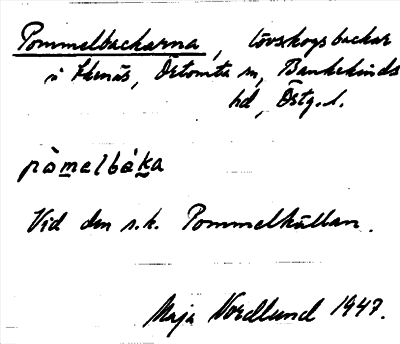 Pommelbackarna, lövskogsbackar
i Ekenäs, Örtomta sn, Bankekinds
hd, Östg. l.
pòmelbáka
Vid den s.k. Pommelkällan.
Maja Nordlund 1947.